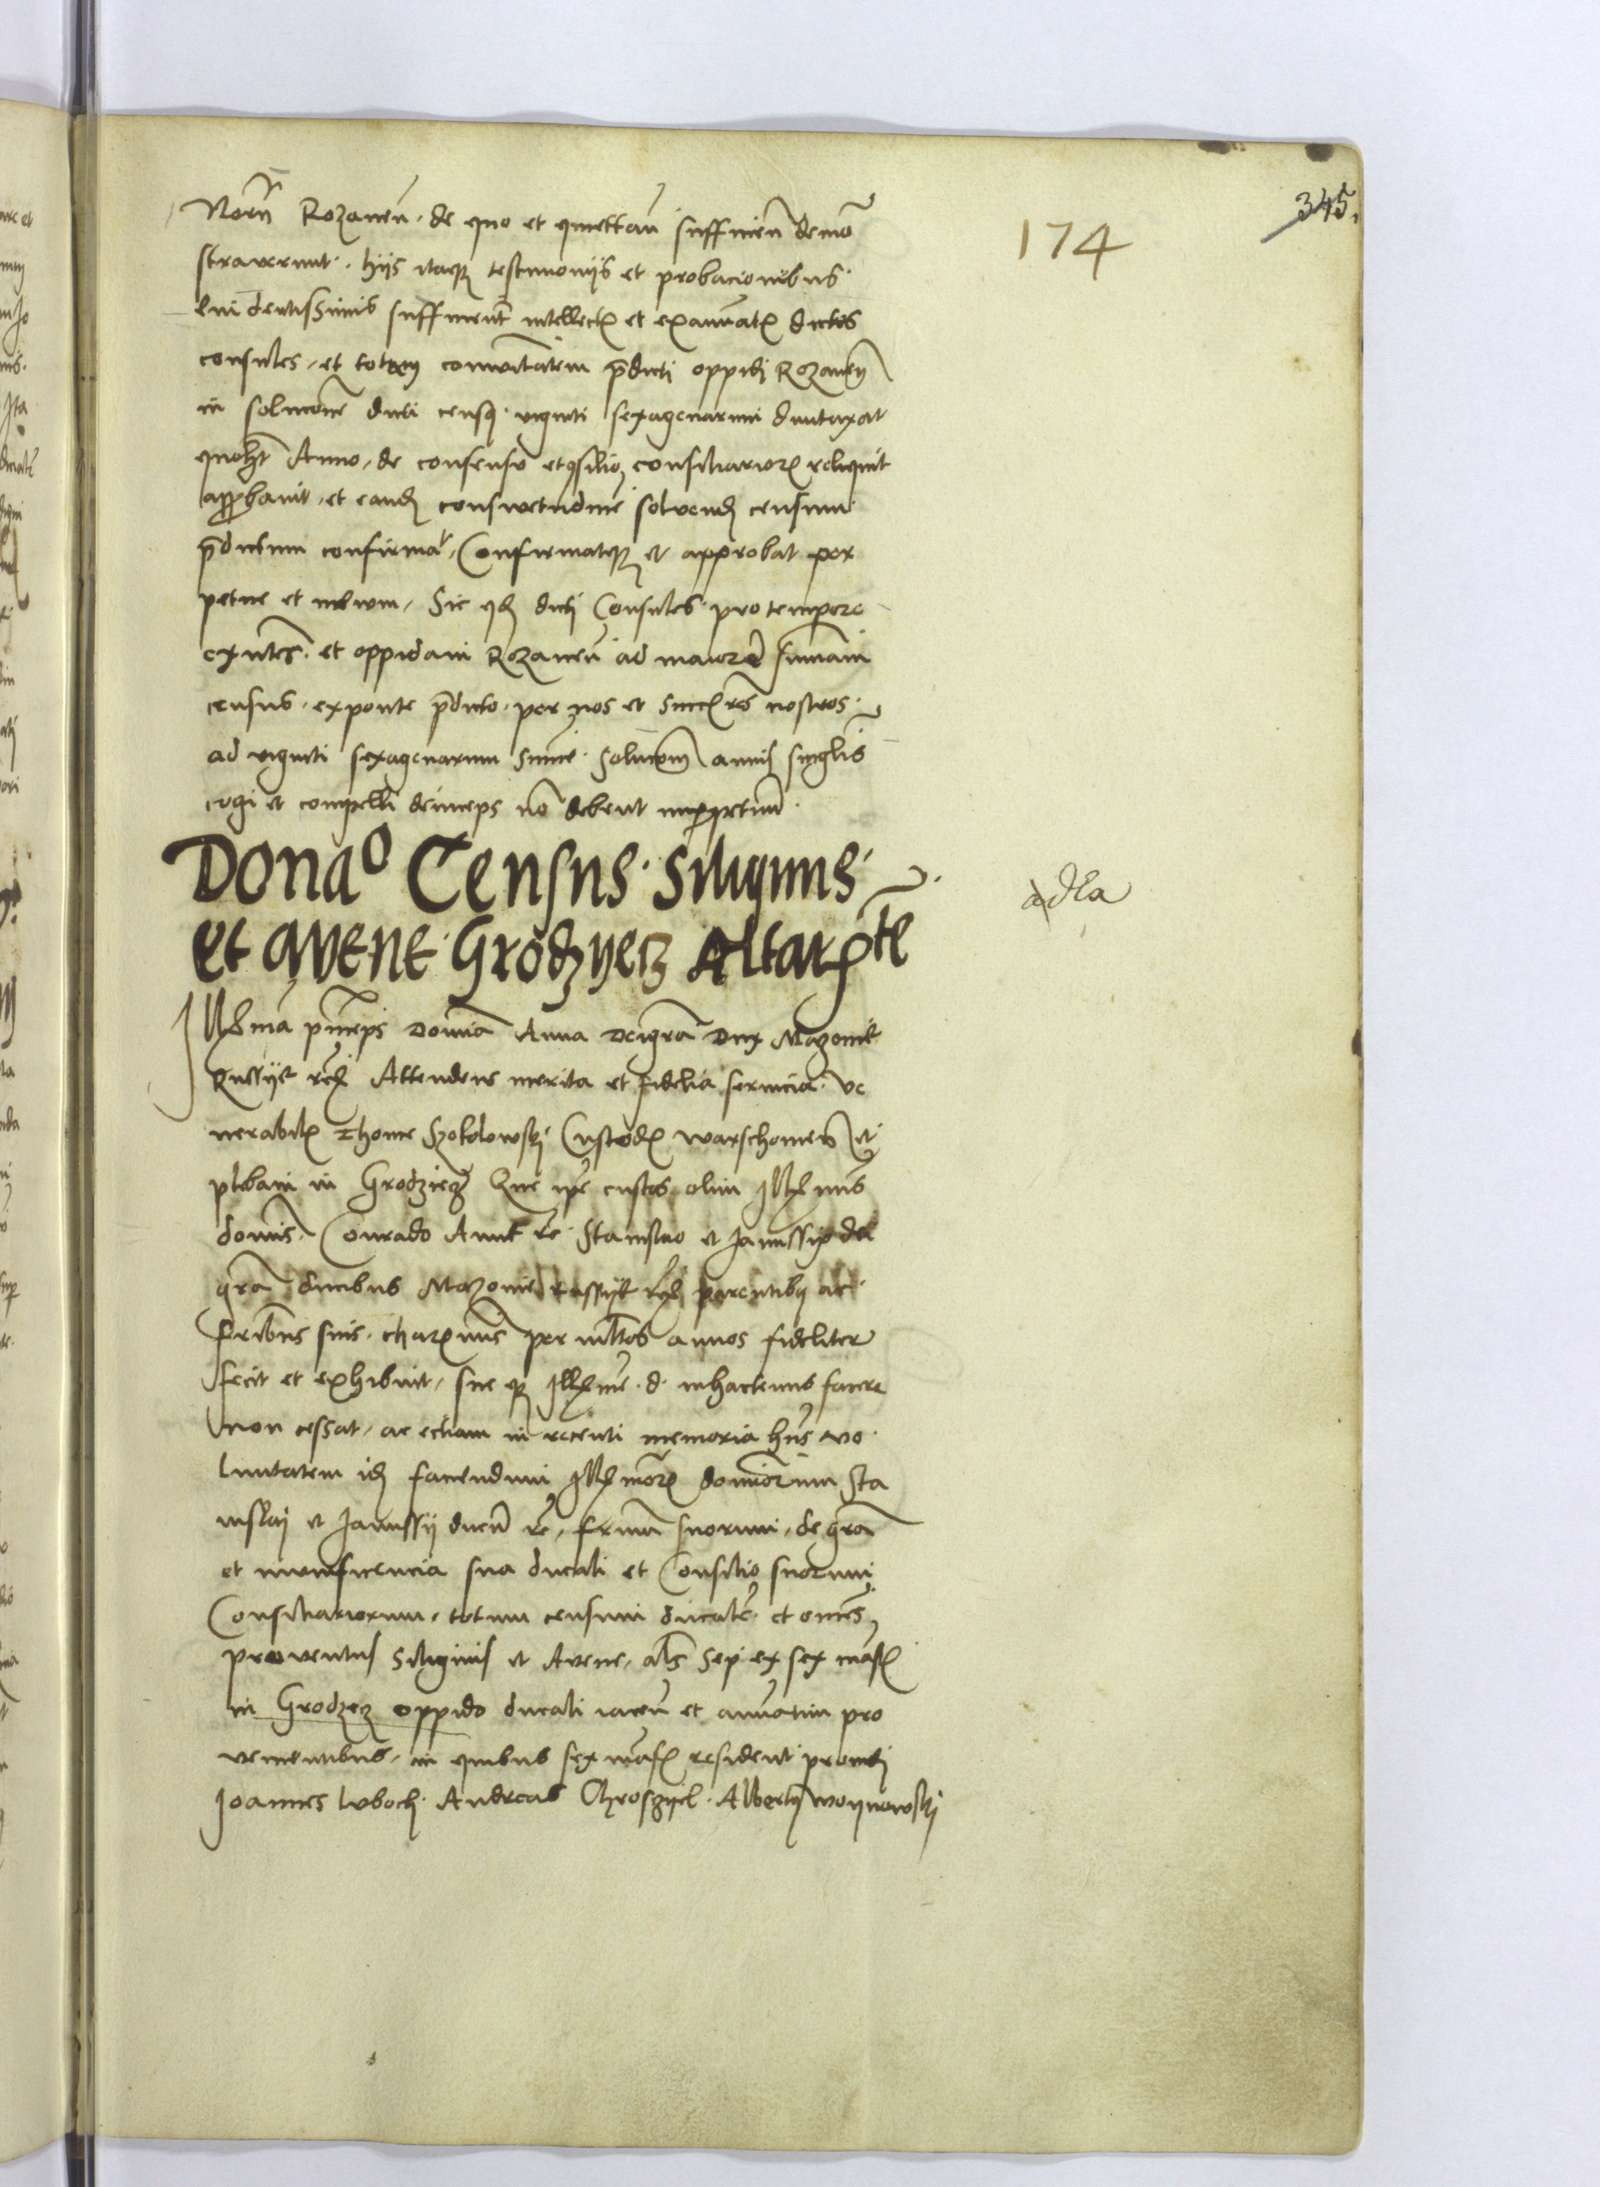 345.
174
Norn Rozanen. de quo et quettan sufficien demo
straverunt. hijs itaque testimonijs et probacionibus
Evidentissimis sufficient intellect et examinat dictos
consules, et totam comunitatem pdicti oppidi Rozanen
in solucone dicti census viginti sexagenarum duntaxat
quolt Anno, de consensu et consilio consiliarior reliquit
approbavit, et eand consuetudine solvendi censum
pdictum confirmat, Confirmatque et approbat per
petue et in evum, Sic qd dicti Consules pro tempore
exntes. et oppidani Rozanen ad maiore summam
census. exponte pdicto. per nos et succres nostros.
ad viginti sexagenarum summe. solucoem annis singlis
cogi et compelli deinceps no debent imperpetuum.
Donao Census. Siliginis.
et avene Grodzyecz Altarte
adla
Illma princeps Domina Anna Dei gra Dux Mazovie
Russyeque Attendens merita et fidelia servicia. ve
nerabilis Thome Szokolowski Custodis warschovien et
plebani in Grodziecz Que ipe custos olim Illmis
domis. Conrado Anne re. Stanislao et Janussio dei
gra ducibus Mazovie Russyeque parentibus ac
fribus suis. charmis per multos annos fideliter
fecit et exhibuit, sue que Illme. d. inhactenus facere
non cessat, ac etiam in recenti memoria hns vo
luntatem id faciendum Illmor dominorum Sta
nislai et Janussij ducum re, frum suorum, de gra
et munificencia sua ducali et Consilio suorum
Consiliariorum, totum censum ducale. et omnes
proventus siliginis et Avene, als Sep ex sex mans
in Grodzecz oppido ducali iacen et annuatim pro
venientibus, in quibus sex mans resident providi
Joannes luboch. Andreas Chroszyel. Albertus woynowski